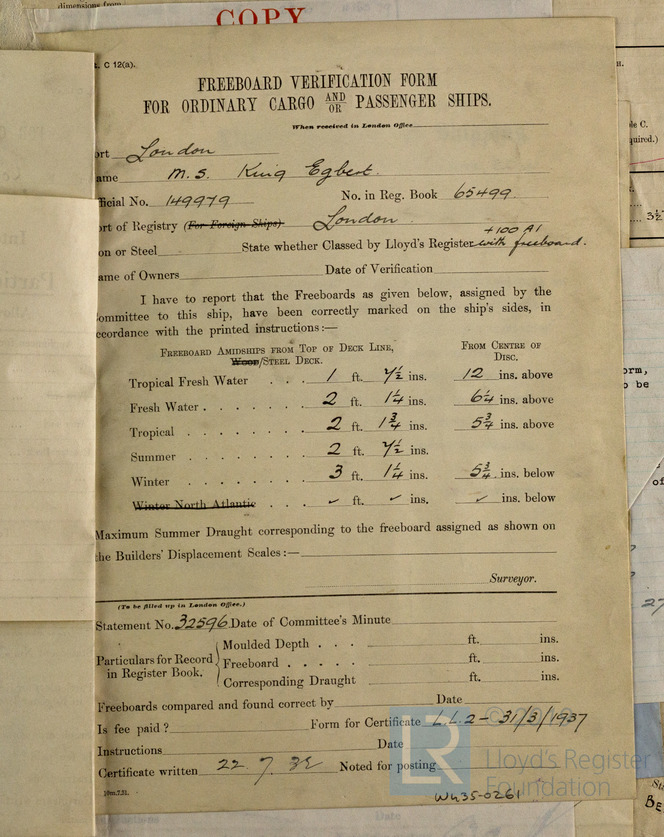 dimensions from
COPY
. C 12(a).
FREEBOARD VERIFICATION FORM
FOR ORDINARY CARGO AND OR PASSENGER SHIPS.
When received in London Office
ort London
ame M.S. King Egbert.
fficial No. 149979 No. in Reg. Book 65499
ort of Registry (For Foreign Ships) London
+100 A1
on or Steel State whether Classed by Lloyd's Register with freeboard.
ame of Owners Date of Verification
I have to report that the Freeboards as given below, assigned by the
ommittee to this ship, have been correctly marked on the ship's sides, in
ccordance with the printed instructions:—
Freeboard Amidships from Top of Deck Line, From Centre of
Wood/Steel Deck. Disc.
Tropical Fresh Water . . . 1 ft. 7½ ins. 12 ins. above
Fresh Water . . . . . . . 2 ft. 1¼ ins. 6¼ ins. above
Tropical . . . . . . . 2 ft. 1¾ ins. 5¾ ins. above
Summer . . . . . . . 2 ft. 7½ ins.
Winter . . . . . . . 3 ft. 1¼ ins. 5¾ ins. below
Winter North Atlantic . . . ✓ ft. ✓ ins. ✓ ins. below
Maximum Summer Draught corresponding to the freeboard assigned as shown on
the Builders' Displacement Scales:—
Surveyor.
(To be filled up in London Office.)
Statement No. 32596 Date of Committee's Minute
Particulars for Record in Register Book.
Moulded Depth . . . ft. ins.
Freeboard . . . . . ft. ins.
Corresponding Draught ft. ins.
Freeboards compared and found correct by Date
Is fee paid? Form for Certificate L.L.2 - 31/3/1937
Instructions Date
Certificate written 22.7.32 Noted for posting
10m.7.31.
W435-0261
LR
Lloyd's Register
Foundation
ble C.
quired.)
3½
orm,
o be
of
27
Date